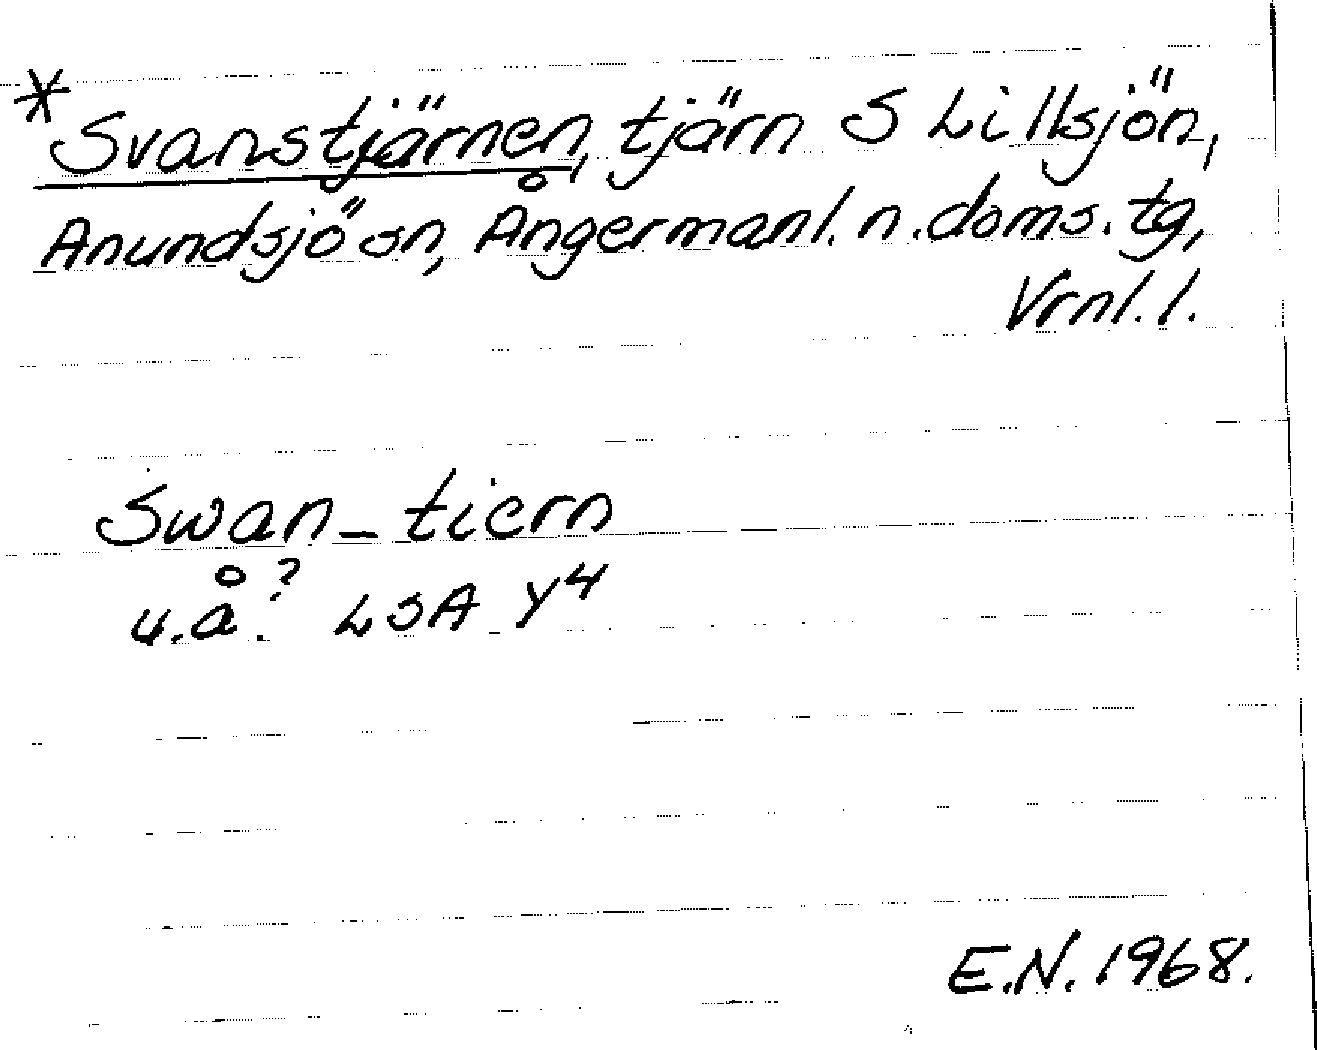 * Svanstjärnen, tjärn S Lillsjön,
Anundsjö sn, Ångermanl. n. doms. tg,
Vrnl. l.
Swan-tiern
u.å.? LSA Y4
E.N. 1968.